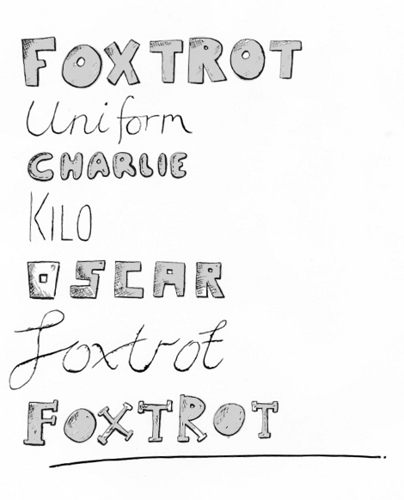 FOXTROT
Uniform
CHARLIE
KILO
OSCAR
Foxtrot
FOXTROT